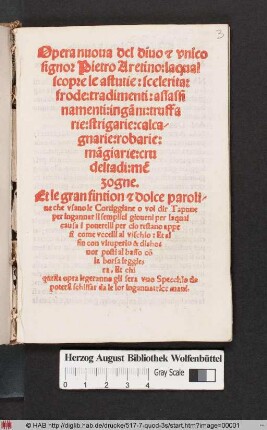 3
Opera nuova del diuo & vnico
signor Pietro Aretino: laqual
scopre le astutie: scelerita:
frode: tradimenti: assassi
namenti: ingāni: truffa
rie: strigarie: calca-
gnarie: robarie:
māgiarie: cru
deltadi: mē
zogne.
Et le gran fintion & dolce paroli-
ne che vsano le Cortiggiane o voi dir Tapune
per ingannar li semplici gioueni per laqual
causa i pouerelli per cio restano appe
si come vccelli al vischio: Et al
fin con vituperio & dishor
nor posti al basso cō
la borsa leggie-
ra. Et chi
questa opra leggeranno gli sera vno Specchio da
poterli schiffar da le lor ingannatrice mani.
Herzog August Bibliothek Wolfenbüttel
0 1 2 3 4
Gray Scale
© HAB http://diglib.hab.de/drucke/517-7-quod-3s/start.htm?image=00001